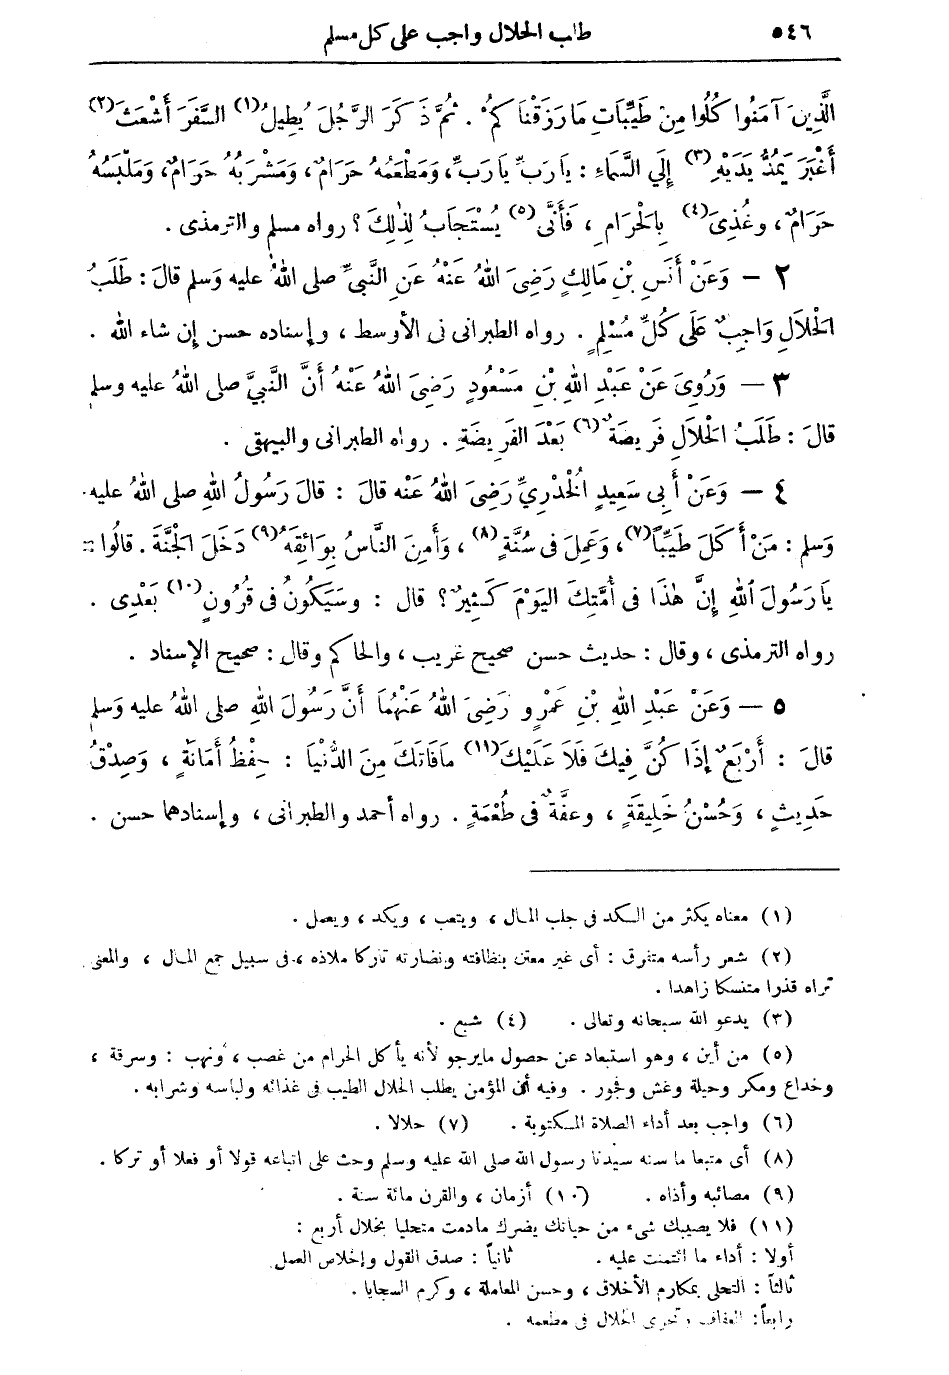 ٥٤٦ طلب الحلال واجب على كل مسلم
الَّذِينَ آمَنُوا كُلُوا مِنْ طَيِّبَاتِ مَا رَزَقْنَاكُمْ . ثُمَّ ذَكَرَ الرَّجُلَ يُطِيلُ(١) السَّفَرَ أَشْعَثَ(٢)
أَغْبَرَ يَمُدُّ يَدَيْهِ(٣) إِلَى السَّمَاءِ : يَا رَبِّ يَا رَبِّ ، وَمَطْعَمُهُ حَرَامٌ ، وَمَشْرَبُهُ حَرَامٌ ، وَمَلْبَسُهُ
حَرَامٌ ، وَغُذِىَ(٤) بِالْحَرَامِ ، فَأَنَّى(٥) يُسْتَجَابُ لِذٰلِكَ ؟ رواه مسلم والترمذى .
٢ – وَعَنْ أَنَسِ بْنِ مَالِكٍ رَضِىَ اللهُ عَنْهُ عَنِ النَّبِىِّ صلى اللهُ عليه وَسلم قالَ : طَلَبُ
الْحَلَالِ وَاجِبٌ عَلَى كُلِّ مُسْلِمٍ . رواه الطبرانى فى الأوسط ، وإسناده حسن إن شاء الله .
٣ – وَرُوِىَ عَنْ عَبْدِ اللهِ بْنِ مَسْعُودٍ رَضِىَ اللهُ عَنْهُ أَنَّ النَّبِيَّ صلى اللهُ عليه وسلم
قالَ : طَلَبُ الْحَلَالِ فَرِيضَةٌ(٦) بَعْدَ الفَرِيضَةِ . رواه الطبرانى والبيهقى .
٤ – وَعَنْ أَبِى سَعِيدٍ الْخُدْرِيِّ رَضِىَ اللهُ عَنْه قالَ : قالَ رَسُولُ اللهِ صلى اللهُ عليه
وَسلم : مَنْ أَكَلَ طَيِّبًا(٧) ، وَعَمِلَ فى سُنَّةٍ(٨) ، وَأَمِنَ النَّاسُ بِوَائِقَهُ(٩) دَخَلَ الْجَنَّةَ . قالُوا :
يَا رَسُولَ اللهِ إِنَّ هٰذَا فى أُمَّتِكَ الْيَوْمَ كَثِيرٌ ؟ قال : وَسَيَكُونُ فى قُرُونٍ(١٠) بَعْدِى .
رواه الترمذى ، وقال : حديث حسن صحيح غريب ، والحاكم وقال : صحيح الإسناد .
٥ – وَعَنْ عَبْدِ اللهِ بْنِ عَمْرٍو رَضِىَ اللهُ عَنْهُمَا أَنَّ رَسُولَ اللهِ صلى اللهُ عليه وَسلم
قالَ : أَرْبَعٌ إِذَا كُنَّ فِيكَ فَلَا عَلَيْكَ(١١) مَا فَاتَكَ مِنَ الدُّنْيَا : حِفْظُ أَمَانَةٍ ، وَصِدْقُ
حَدِيثٍ ، وَحُسْنُ خَلِيقَةٍ ، وعفَّةٌ فى طُعْمَةٍ . رواه أحمد والطبرانى ، وإسنادهما حسن .
(١) معناه يكثر من الكد فى جلب المال ، ويتعب ، ويكد ، ويعمل .
(٢) شعر رأسه متفرق : أى غير معتن بنظافته ونضارته تاركا ملاذه ، فى سبيل جمع المال ، والمعنى
تراه قذرا متنسكا زاهدا .
(٣) يدعو الله سبحانه وتعالى . (٤) شبع .
(٥) من أين ، وهو استبعاد عن حصول مايرجو لأنه يأكل الحرام من غصب ، ونهب : وسرقة ،
وخداع ومكر وحيلة وغش وفجور . وفيه أن المؤمن يطلب الحلال الطيب فى غذائه ولباسه وشرابه .
(٦) واجب بعد أداء الصلاة المكتوبة . (٧) حلالا .
(٨) أى متبعا ما سنه سيدنا رسول الله صلى الله عليه وسلم وحث على اتباعه قولا أو فعلا أو تركا .
(٩) مصائبه وأذاه . (١٠) أزمان ، والقرن مائة سنة .
(١١) فلا يصيبك شىء من حياتك يضرك مادمت متحليا بخلال أربع :
أولا : أداء ما ائتمنت عليه . ثانياً : صدق القول وإخلاص العمل
ثالثاً : التحلى بمكارم الأخلاق ، وحسن المعاملة ، وكرم السجايا .
رابعاً : العفاف وتحرى الحلال فى مطعمه .